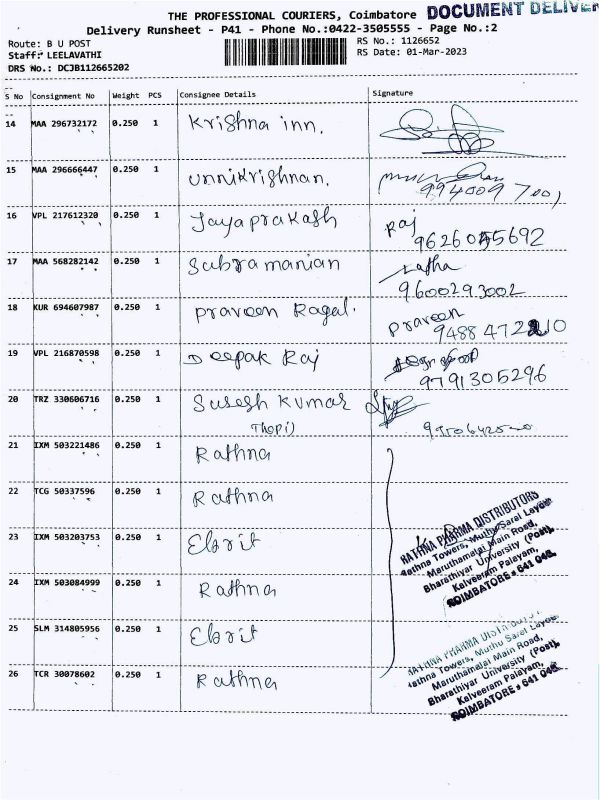 DOCUMENT DELIVER
THE PROFESSIONAL COURIERS, Coimbatore
Delivery Runsheet - P41 - Phone No.:0422-3505555 - Page No.:2
Route: B U POST RS No.: 1126652
Staff: LEELAVATHI RS Date: 01-Mar-2023
DRS No.: DCJB112665202
S No Consignment No Weight PCS Consignee Details Signature
14 MAA 296732172 0.250 1 Krishna inn.
15 MAA 296666447 0.250 1 Unnikrishnan.
994009 7001
16 VPL 217612320 0.250 1 Jayaprakash Raj
9626055692
17 MAA 568282142 0.250 1 Subramanian Latha
9600293002
18 KUR 694607987 0.250 1 Praveen Ragal. Praveen
9488 472210
19 VPL 216870598 0.250 1 Deepak Raj
9791305296
20 TRZ 330606716 0.250 1 Suresh Kumar
Thopi)
21 IXM 503221486 0.250 1 Rathna
22 TCG 50337596 0.250 1 Rathna
23 IXM 503203753 0.250 1 Ebrit
24 IXM 503084999 0.250 1 Rathna
25 SLM 314805956 0.250 1 Ebrit
26 TCR 30078602 0.250 1 Rathna
RATHNA PHARMA DISTRIBUTORS
Rathna Towers, Muthu Sarel Layout
Maruthamalai Main Road,
Bharathiyar University (Post),
Kalveeram Palayam,
COIMBATORE - 641 046.
RATHNA PHARMA DISTRIBUTORS
Rathna Towers, Muthu Sarel Layout
Maruthamalai Main Road,
Bharathiyar University (Post),
Kalveeram Palayam,
COIMBATORE - 641 046.